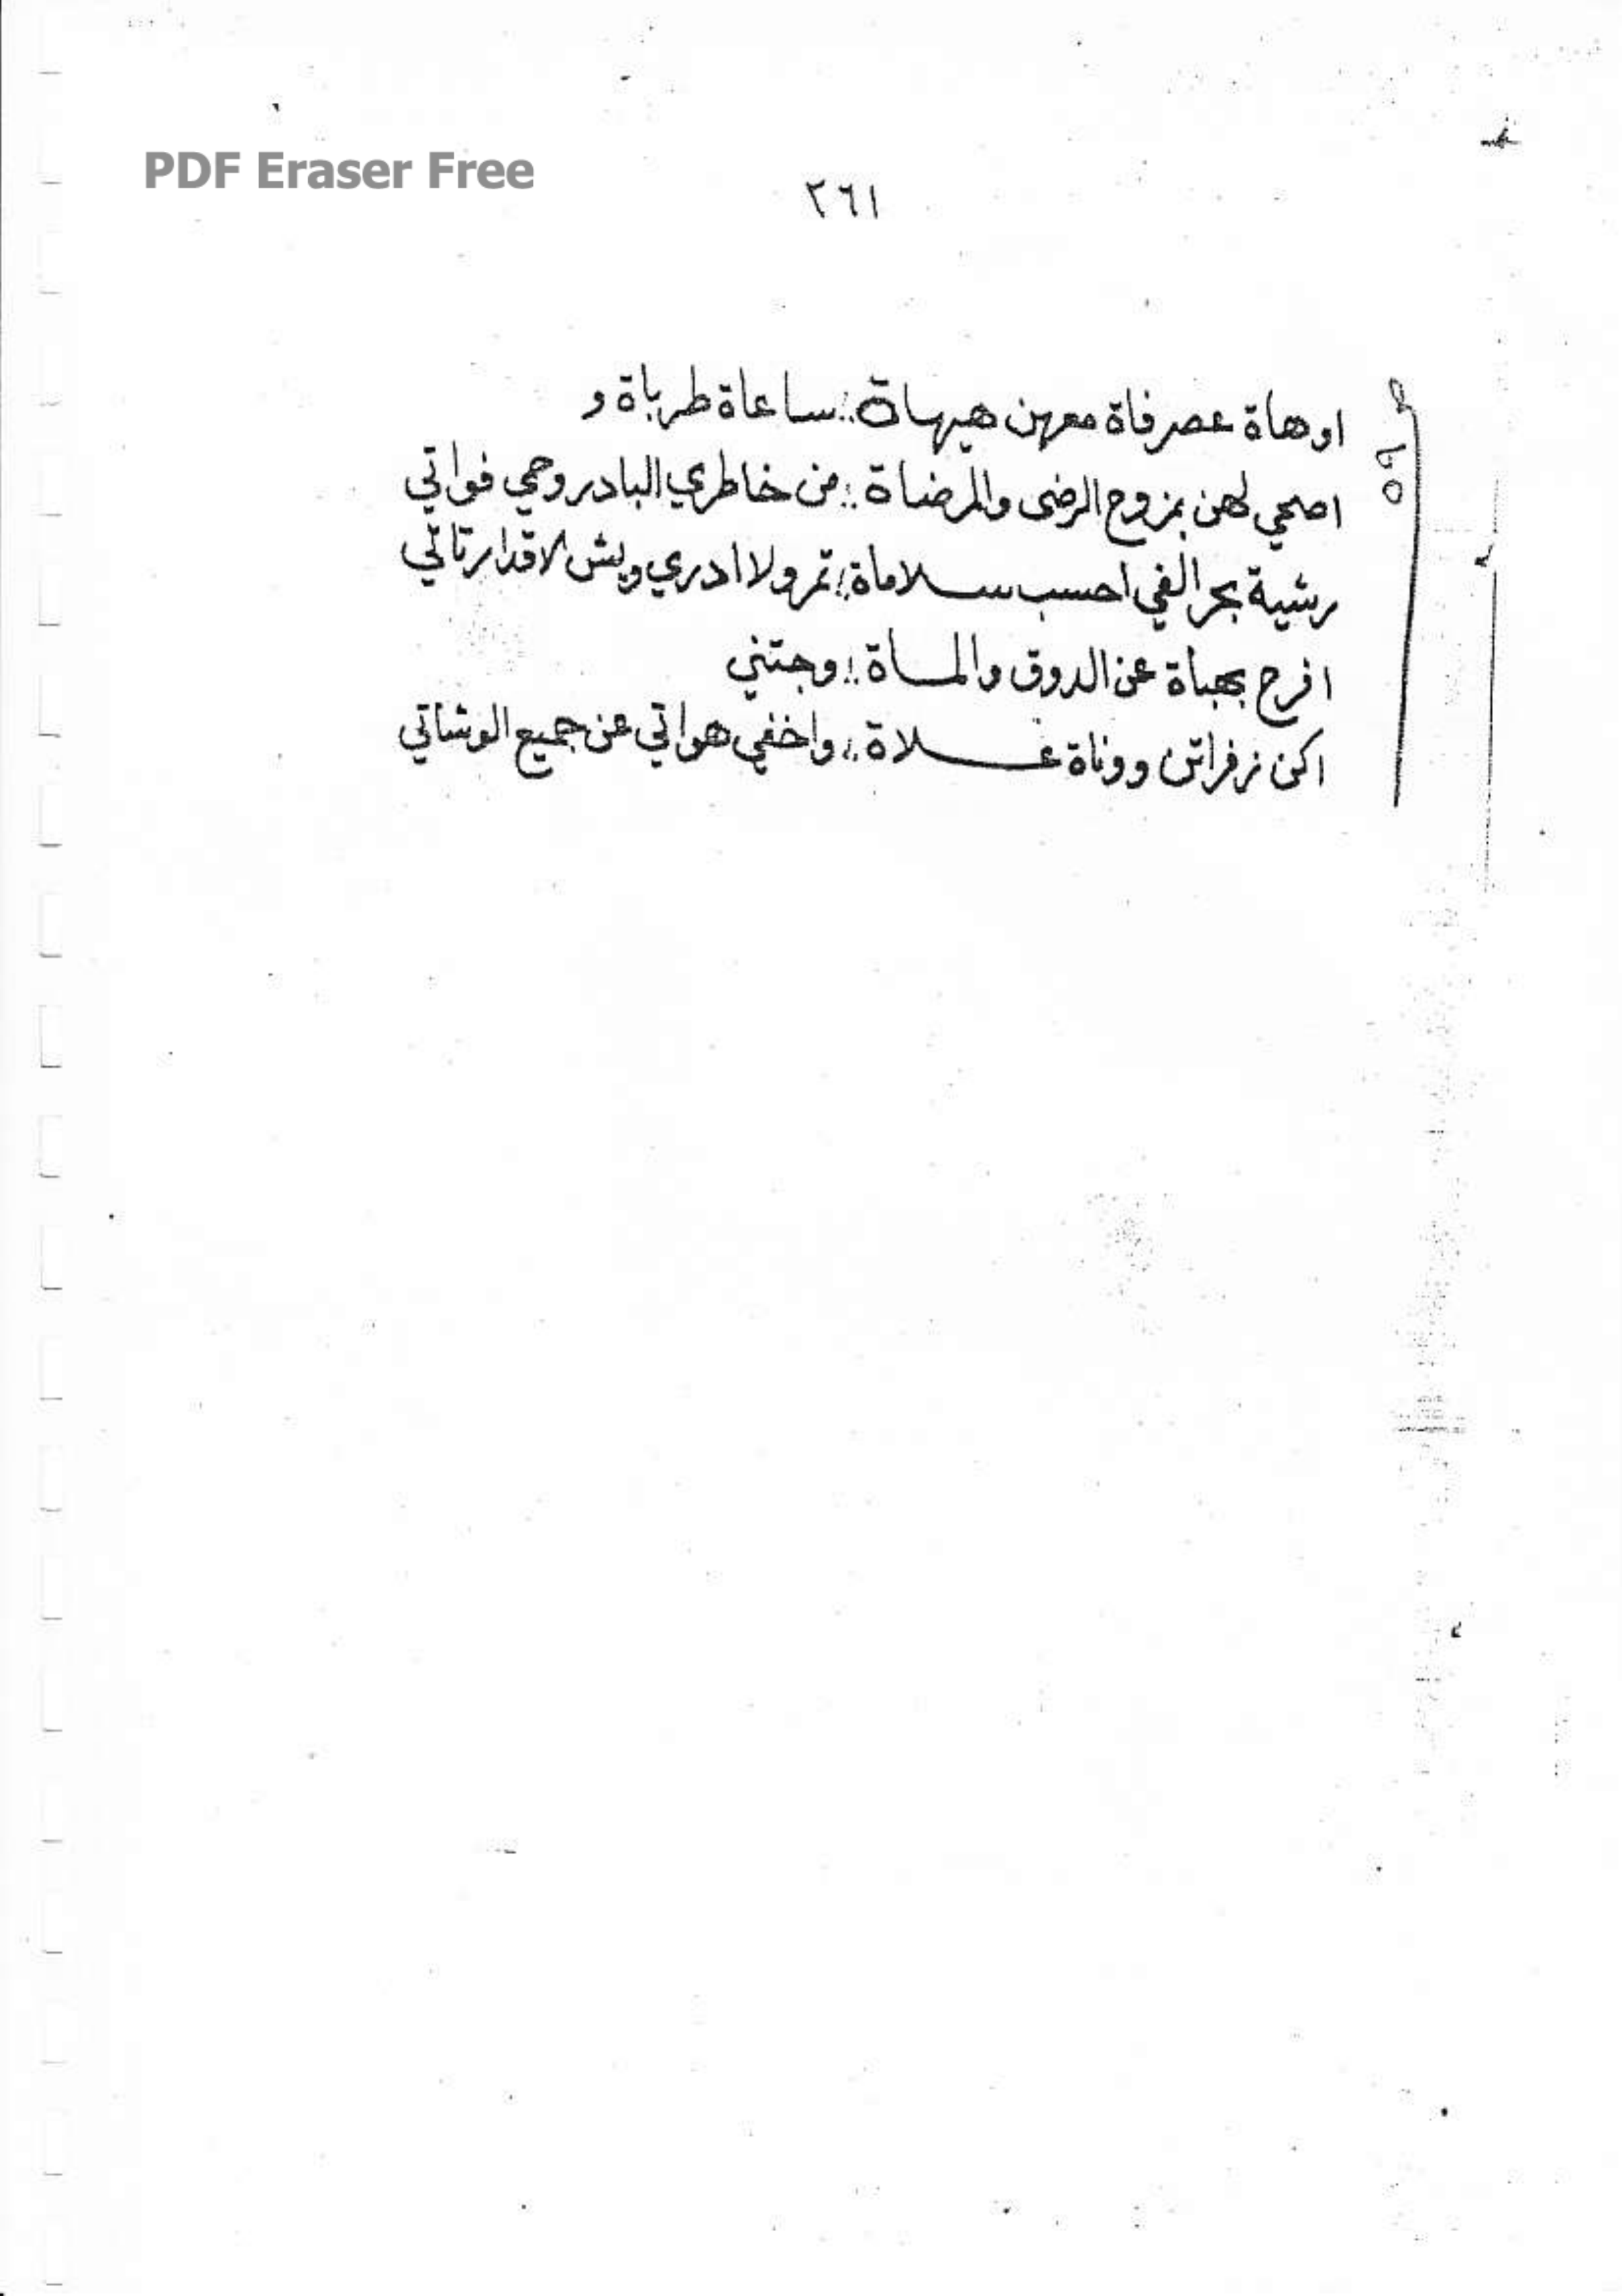 PDF Eraser Free
٢٦١
اوهاة عصر فاة معهن هيهاة :: ساعاة طرباة و
اصحي لهن بمزوح الرضى والمرضاة :: من خاطري البادر وحي فواتي
رشية بحر الفي احسب سلاماة :: تمر ولا ادري ويش لاقدار تاتي
افرح بجباة عن الدوق والماة :: وجتني
اكن زفراتن ووناة علاة :: واخفي هواتي عن جميع الوشاتي